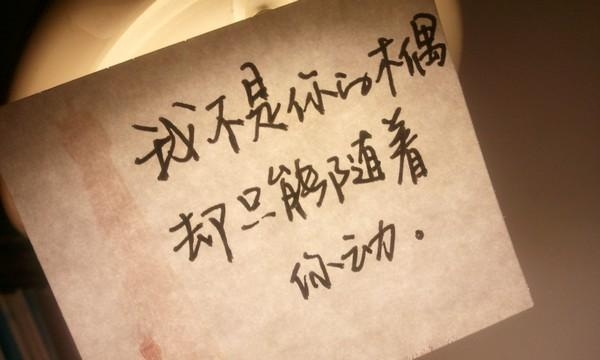 我不是你的木偶
却只能够随着
你动。